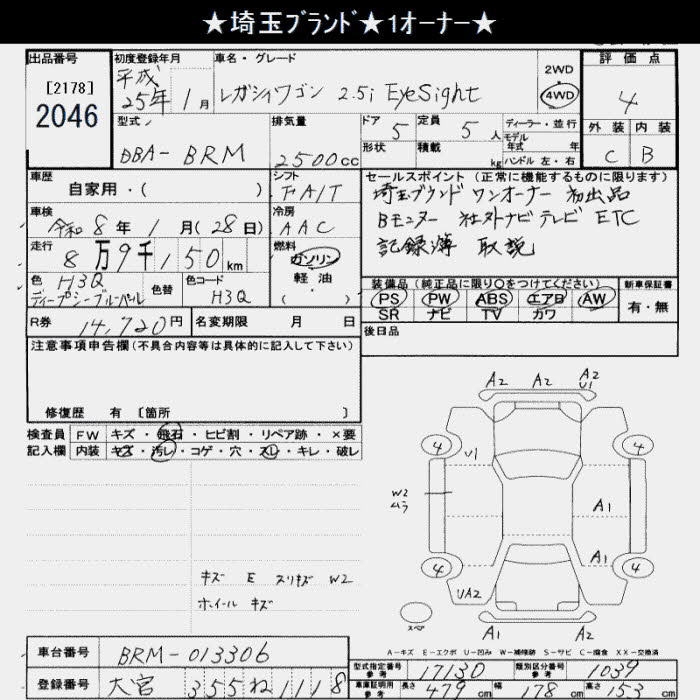 ★埼玉ﾌﾞﾗﾝﾄﾞ★1オーナー★
出品番号
[2178]
2046
初度登録年月
平成
25年 1月
車名・グレード
レガシィワゴン 2.5i EyeSight
2WD
4WD
評価点
4
外装 内装
C B
型式
DBA- BRM
排気量
2500cc
ドア 5
定員 5人
形状
積載 kg
ディーラー・並行
モデル
年式 年
ハンドル 左・右
車歴
自家用・( )
シフト
FAIT
セールスポイント (正常に機能するものに限ります)
埼玉ブランド ワンオーナー 初出品
Bモニター 社外ナビテレビ ETC
記録簿 取説
車検
令和 8年 1月(28日)
冷房
AAC
走行
8万9千150km
燃料
ガソリン
・
軽油
( )
色 H3Q
ディープシーブルーパール
色替
色コード
H3Q
装備品 (純正品に限り○をつけてください)
PS PW ABS エアB AW
SR ナビ TV カワ
新車保証書
有・無
R券 14,720円
名変期限 月 日
後日品
注意事項申告欄 (不具合内容等は具体的に記入して下さい)
修復歴 有 [箇所 ]
検査員 FW キズ・飛石・ヒビ割・リペア跡・×要
記入欄 内装 キズ・汚レ・コゲ・穴・スレ・キレ・破レ
キズ E スリキズ W2
ホイール キズ
A2 A2 A2
U1
4 4
U1
W2
ムラ
A1
A1
4 4
UA2
スペア
A1 A2
A−キズ E−エクボ U−凹み W−補修跡 S−サビ C−腐食 XX−交換済
車台番号 BRM-013306
登録番号 大宮 355 ね 1118
型式指定番号
参考
17130
類別区分番号
参考
1039
車庫証明用
参考
長さ 479cm 幅 178cm 高さ 153cm